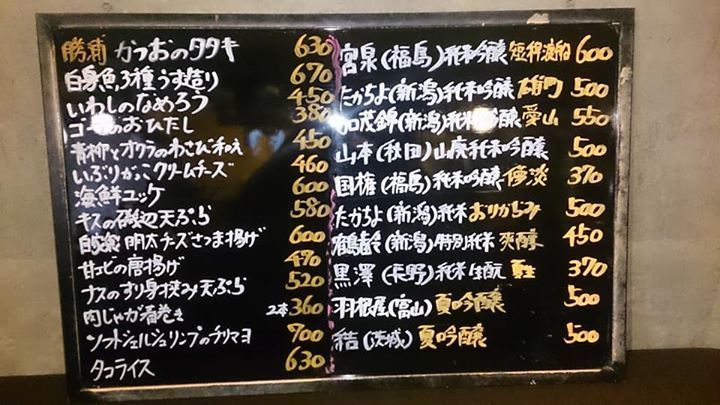 勝浦 かつおのタタキ 630
白身魚3種うす造り 670
いわしのなめろう 450
ゴーヤのおひたし 380
青柳とオクラのわさび和え 450
いぶりがっこクリームチーズ 460
海鮮ユッケ 600
キスの磯辺天ぷら 580
自家製 明太チーズさつま揚げ 600
甘エビの唐揚げ 490
ナスのすり身挟み天ぷら 520
肉じゃが春巻き 2本 360
ソフトシェルシュリンプのチリマヨ 700
タコライス 630
宮泉(福島)純米吟醸 600
たかちよ(新潟)純米吟醸 雄町 500
加茂錦(新潟)純米吟醸 愛山 550
山本(秋田)山廃純米吟醸 500
国権(福島)純米吟醸 370
たかちよ(新潟)純米 おりがらみ 500
鶴齢(新潟)特別純米 爽醇 450
黒澤(長野)純米生酛 370
羽根屋(富山)夏吟醸 500
結(茨城)夏吟醸 500